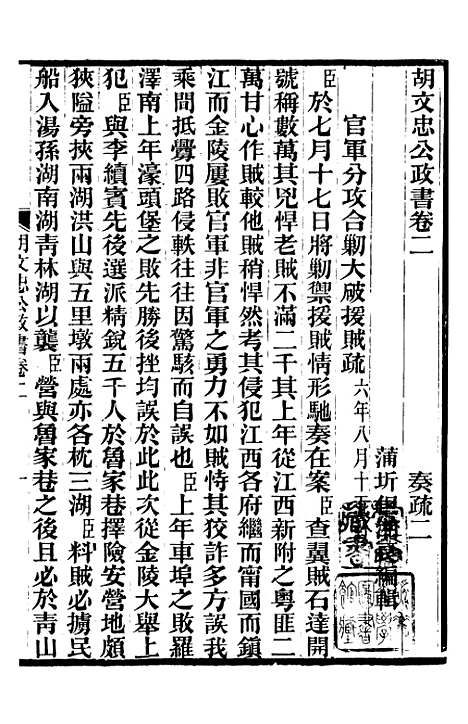 胡文忠公政書卷二　奏疏二
蒲圻　編輯
官軍分攻合剿大破援賊疏　六年八月十
臣於七月十七日將剿禦援賊情形馳奏在案臣查翼賊石達開
號稱數萬其兇悍老賊不滿二千其上年從江西新附之粵匪二
萬甘心作賊較他賊稍悍然考其侵犯江西各府繼而甯國而鎮
江而金陵屢敗官軍非官軍之勇力不如賊恃其狡詐多方誤我
乘間抵釁四路侵軼往往因驚駭而自誤也臣上年車埠之敗羅
澤南上年濠頭堡之敗先勝後挫均誤於此此次金陵大舉上
犯臣與李續賓先後選派精銳五千人於魯家巷擇險安營地頗
狹隘旁挾兩湖洪山與五里墩兩處亦各枕三湖臣料賊必擄民
船入湯孫湖南湖青林湖以襲臣營與魯家巷之後且必於青山
胡文忠公政書卷二　一